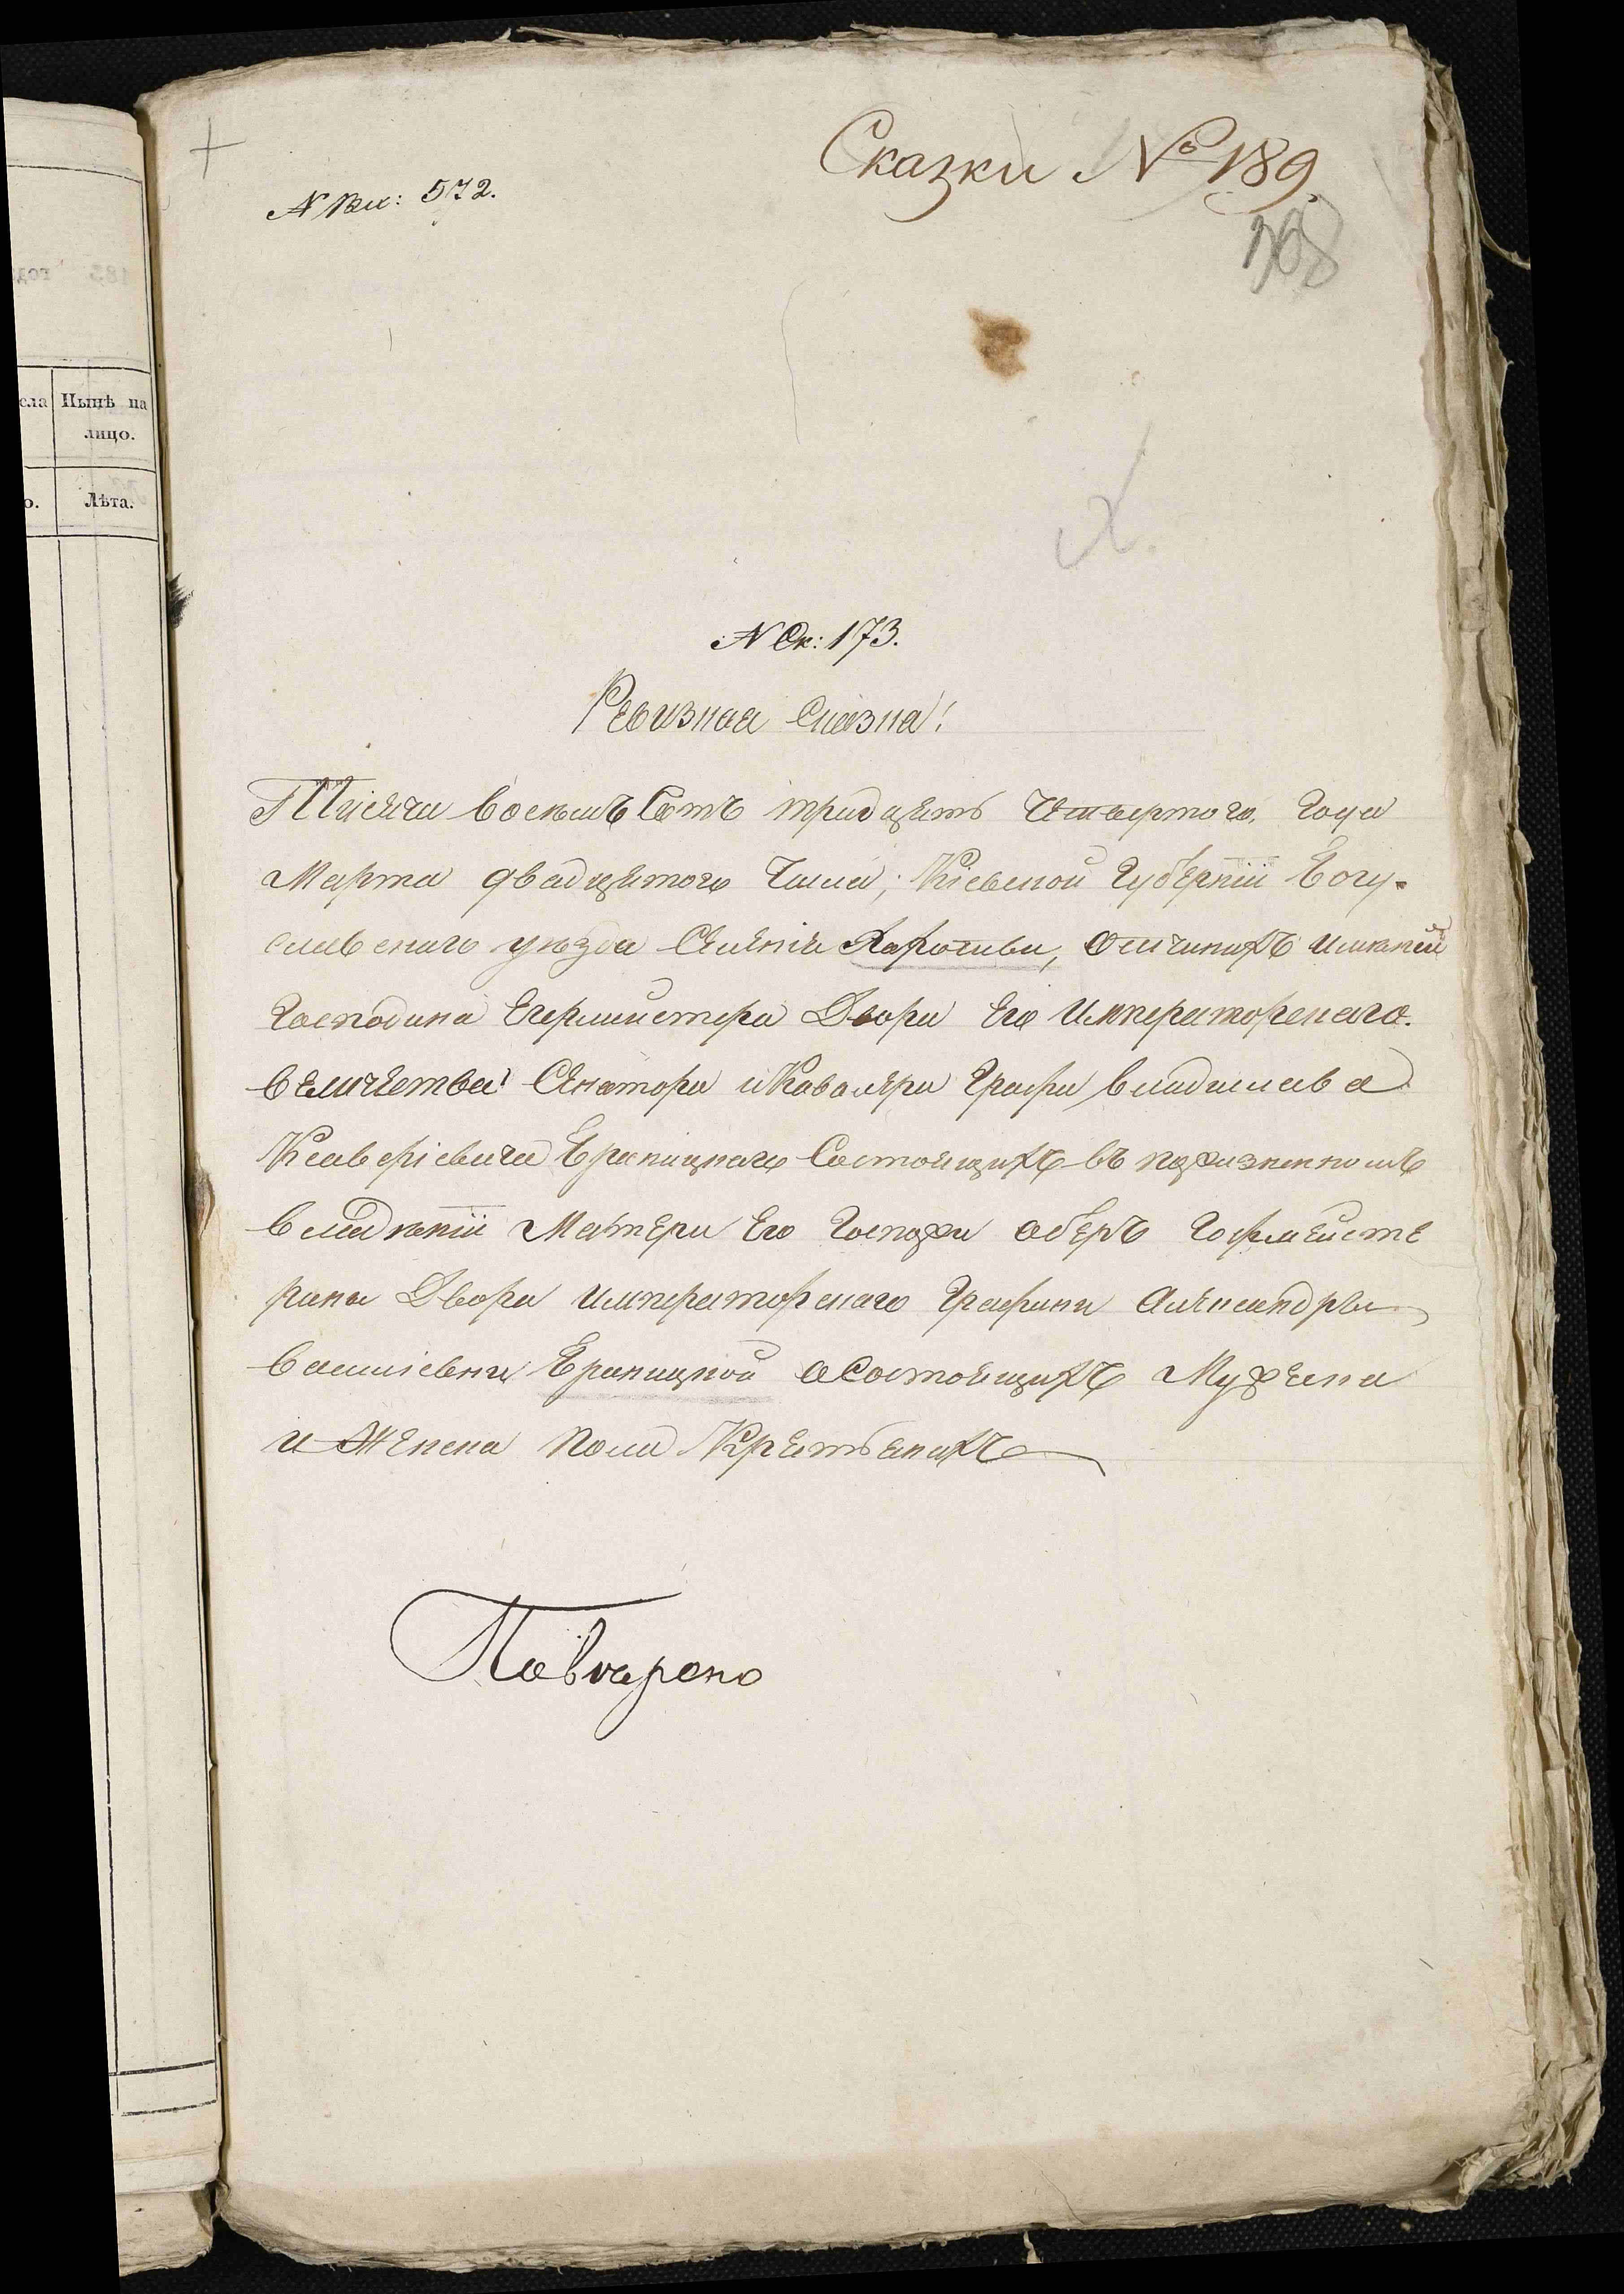 Сказки № 189.
N Вх: 572.
368
N Ск: 173.
Ревизная Сказка!
Тысяча восемъ Сотъ тридцать Четвертого, Года
Марта двадцатого Числа; Кіевской Губерніи Богу-
славского уезда Селенія Хохотвы, отчиныхъ имѣній
Господина Егермистера Двора Его Императорскаго.
Величества! Сенатора и Кавалера Графа Владислава
Ксаверіевича Браницкаго Состоящихъ въ пожизненномъ
владѣніи Матери Его Госпожи Оберъ Гофмейсте
рины Двора Императорскаго Графини Александры
Василіевны Браницкой о Состоящихъ Мужеска
и Женска пола Крестьянахъ
сла
Нынѣ на
лицо.
о.
Лѣта.